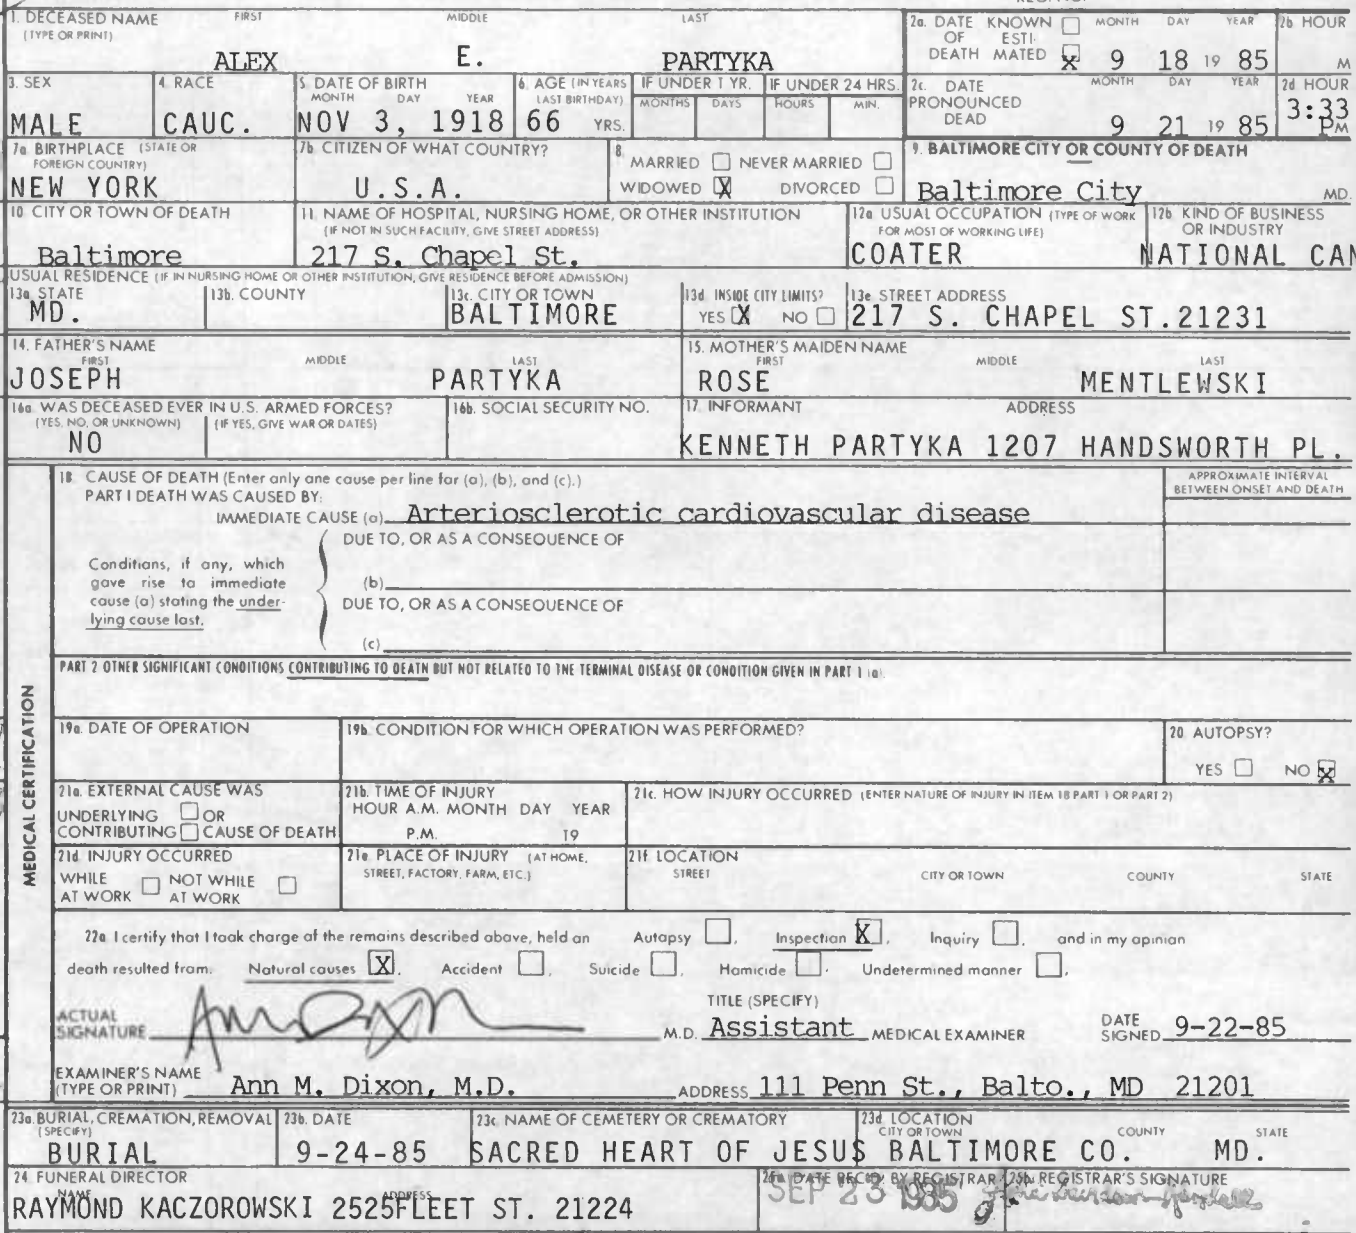 1. DECEASED NAME FIRST MIDDLE LAST
(TYPE OR PRINT)
ALEX E. PARTYKA
2a. DATE KNOWN MONTH DAY YEAR
OF ESTI-
DEATH MATED X 9 18 19 85
2b HOUR
M
3. SEX
MALE
4. RACE
CAUC.
5. DATE OF BIRTH
MONTH DAY YEAR
NOV 3, 1918
6. AGE (IN YEARS
LAST BIRTHDAY)
66 YRS.
IF UNDER 1 YR.
MONTHS DAYS
IF UNDER 24 HRS.
HOURS MIN.
2c. DATE MONTH DAY YEAR
PRONOUNCED
DEAD 9 21 19 85
2d HOUR
3:33
PM
7a. BIRTHPLACE (STATE OR
FOREIGN COUNTRY)
NEW YORK
7b. CITIZEN OF WHAT COUNTRY?
U.S.A.
8.
MARRIED NEVER MARRIED
WIDOWED X DIVORCED
9. BALTIMORE CITY OR COUNTY OF DEATH
Baltimore City MD.
10. CITY OR TOWN OF DEATH
Baltimore
11. NAME OF HOSPITAL, NURSING HOME, OR OTHER INSTITUTION
(IF NOT IN SUCH FACILITY, GIVE STREET ADDRESS)
217 S. Chapel St.
12a USUAL OCCUPATION (TYPE OF WORK
FOR MOST OF WORKING LIFE)
COATER
12b. KIND OF BUSINESS
OR INDUSTRY
NATIONAL CAN
USUAL RESIDENCE (IF IN NURSING HOME OR OTHER INSTITUTION, GIVE RESIDENCE BEFORE ADMISSION)
13a. STATE
MD.
13b. COUNTY
13c. CITY OR TOWN
BALTIMORE
13d. INSIDE CITY LIMITS?
YES X NO
13e STREET ADDRESS
217 S. CHAPEL ST.21231
14. FATHER'S NAME
FIRST MIDDLE LAST
JOSEPH PARTYKA
15. MOTHER'S MAIDEN NAME
FIRST MIDDLE LAST
ROSE MENTLEWSKI
16a. WAS DECEASED EVER IN U.S. ARMED FORCES?
(YES, NO, OR UNKNOWN) (IF YES, GIVE WAR OR DATES)
NO
16b. SOCIAL SECURITY NO.
17. INFORMANT ADDRESS
KENNETH PARTYKA 1207 HANDSWORTH PL.
MEDICAL CERTIFICATION
18. CAUSE OF DEATH (Enter only one cause per line for (a), (b), and (c).)
PART I DEATH WAS CAUSED BY:
IMMEDIATE CAUSE (a) Arteriosclerotic cardiovascular disease
APPROXIMATE INTERVAL
BETWEEN ONSET AND DEATH
DUE TO, OR AS A CONSEQUENCE OF
Conditions, if any, which
gave rise to immediate
cause (a) stating the under-
lying cause last.
(b)
DUE TO, OR AS A CONSEQUENCE OF
(c)
PART 2 OTHER SIGNIFICANT CONDITIONS CONTRIBUTING TO DEATH BUT NOT RELATED TO THE TERMINAL DISEASE OR CONDITION GIVEN IN PART 1 (a).
19a. DATE OF OPERATION
19b. CONDITION FOR WHICH OPERATION WAS PERFORMED?
20. AUTOPSY?
YES NO X
21a. EXTERNAL CAUSE WAS
UNDERLYING OR
CONTRIBUTING CAUSE OF DEATH
21b. TIME OF INJURY
HOUR A.M. MONTH DAY YEAR
P.M. 19
21c. HOW INJURY OCCURRED (ENTER NATURE OF INJURY IN ITEM 18 PART 1 OR PART 2)
21d. INJURY OCCURRED
WHILE NOT WHILE
AT WORK AT WORK
21e. PLACE OF INJURY (AT HOME,
STREET, FACTORY, FARM, ETC.)
21f. LOCATION
STREET CITY OR TOWN COUNTY STATE
22a. I certify that I took charge of the remains described above, held an Autopsy, Inspection X, Inquiry, and in my opinion
death resulted from: Natural causes X, Accident, Suicide, Homicide, Undetermined manner.
ACTUAL
SIGNATURE
M.D.
TITLE (SPECIFY)
Assistant MEDICAL EXAMINER
DATE
SIGNED 9-22-85
EXAMINER'S NAME
(TYPE OR PRINT) Ann M. Dixon, M.D. ADDRESS 111 Penn St., Balto., MD 21201
23a. BURIAL, CREMATION, REMOVAL
(SPECIFY)
BURIAL
23b. DATE
9-24-85
23c. NAME OF CEMETERY OR CREMATORY
SACRED HEART OF JESUS
23d. LOCATION
CITY OR TOWN COUNTY STATE
BALTIMORE CO. MD.
24. FUNERAL DIRECTOR
NAME ADDRESS
RAYMOND KACZOROWSKI 2525FLEET ST. 21224
25a. DATE REC'D. BY REGISTRAR
SEP 23 1985
25b. REGISTRAR'S SIGNATURE